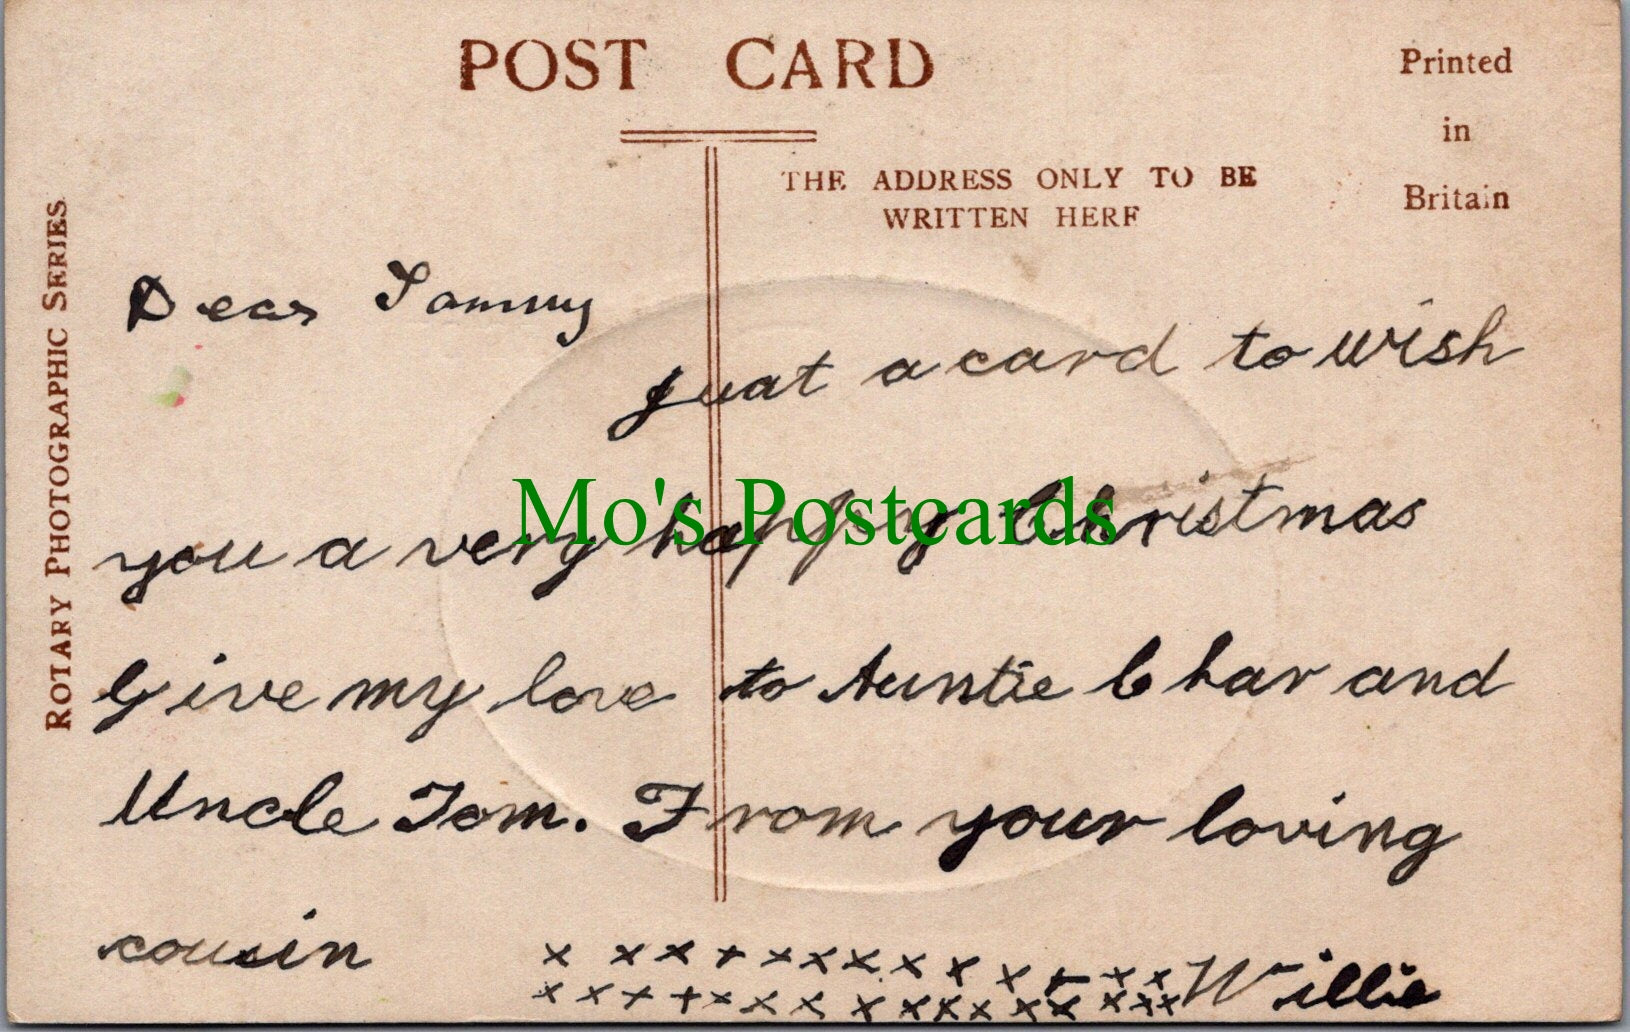 POST CARD
Printed
in
Britain
THE ADDRESS ONLY TO BE
WRITTEN HERE
ROTARY PHOTOGRAPHIC SERIES
Dear Tommy
Just a card to wish
you a very happy Christmas
Mo's Postcards
Give my love to Auntie Char and
Uncle Tom. From your loving
cousin Willie
x x x x x x x x x x x x x
x x x x x x x x x x x x x x x x